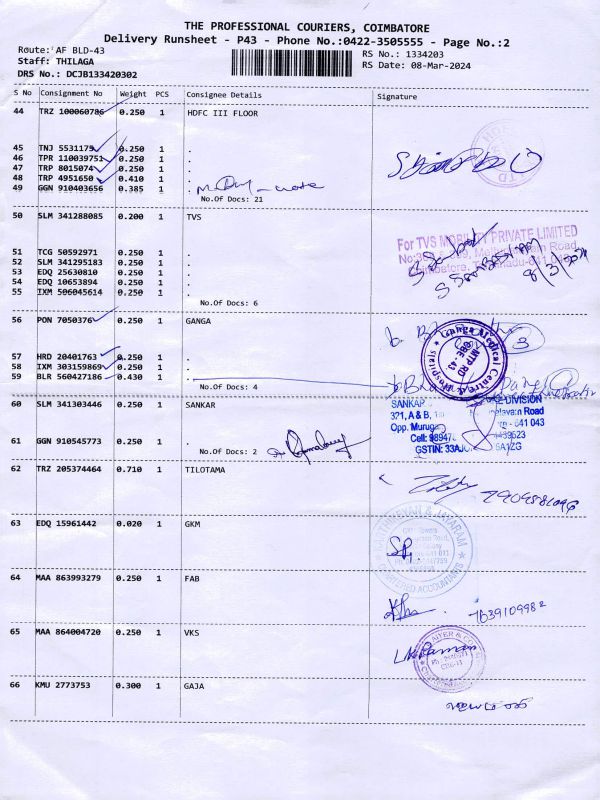 THE PROFESSIONAL COURIERS, COIMBATORE
Delivery Runsheet - P43 - Phone No.:0422-3505555 - Page No.:2
Route: AF BLD-43
Staff: THILAGA
DRS No.: DCJB133420302
RS No.: 1334203
RS Date: 08-Mar-2024
S No Consignment No Weight PCS Consignee Details Signature
44 TRZ 100060786 0.250 1 HDFC III FLOOR
45 TNJ 5531179 0.250 1 .
46 TPR 110039751 0.250 1 .
47 TRP 8015074 0.250 1 .
48 TRP 4951650 0.410 1 .
49 GGN 910403656 0.385 1 .
No.Of Docs: 21
50 SLM 341288085 0.200 1 TVS
For TVS MOBILITY PRIVATE LIMITED
51 TCG 50592971 0.250 1 .
52 SLM 341295183 0.250 1 .
53 EDQ 25630810 0.250 1 .
54 EDQ 10653894 0.250 1 .
55 IXM 506045614 0.250 1 .
8/3/2024
No.Of Docs: 6
56 PON 7050376 0.250 1 GANGA
3
Ganga Medical Centre & Hospitals
MTP RD
CBE-43
57 HRD 20401763 0.250 1 .
58 IXM 303159869 0.250 1 .
59 BLR 560427186 0.430 1 .
No.Of Docs: 4
60 SLM 341303446 0.250 1 SANKAR
321, A & B,
Road
Opp.
641 043
Cell:
GSTIN:
61 GGN 910545773 0.250 1 .
No.Of Docs: 2
62 TRZ 205374464 0.710 1 TILOTAMA
63 EDQ 15961442 0.020 1 GKM
& JAYARAM
CHARTERED ACCOUNTANTS
64 MAA 863993279 0.250 1 FAB
7639109982
65 MAA 864004720 0.250 1 VKS
66 KMU 2773753 0.300 1 GAJA